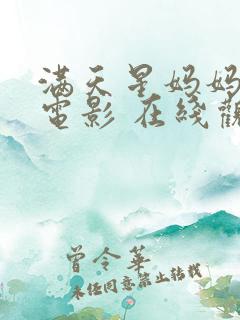 满天星妈妈
電影 在线觀
曾令華
未经同意禁止转载